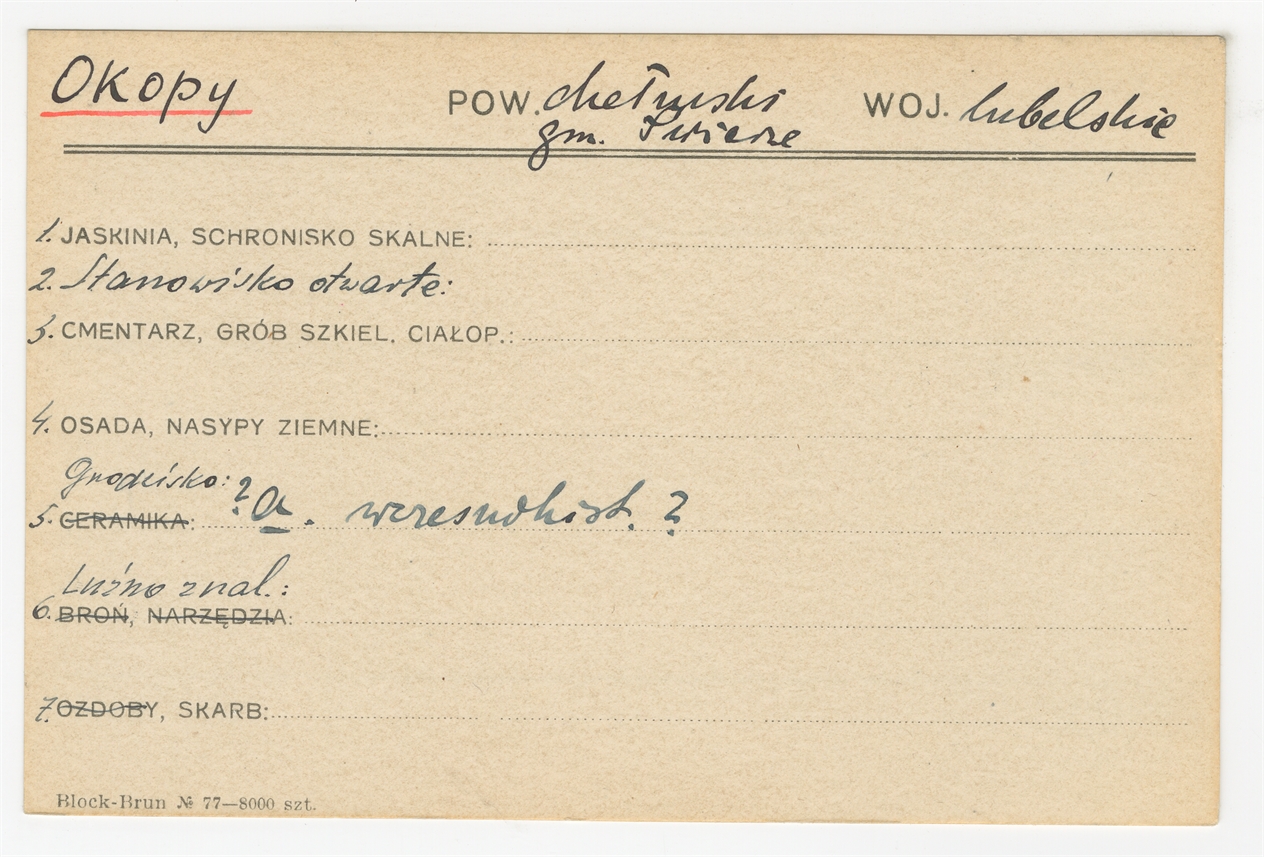 Okopy POW. chełmski WOJ. lubelskie
gm. Świerże
1. JASKINIA, SCHRONISKO SKALNE:
2. Stanowisko otwarte:
3. CMENTARZ, GRÓB SZKIEL. CIAŁOP.:
4. OSADA, NASYPY ZIEMNE:
Grodzisko:
5. CERAMIKA: ? a. wczesnohist. ?
Luźno znal.:
6. BROŃ, NARZĘDZIA:
7. OZDOBY, SKARB:
Block-Brun № 77—8000 szt.